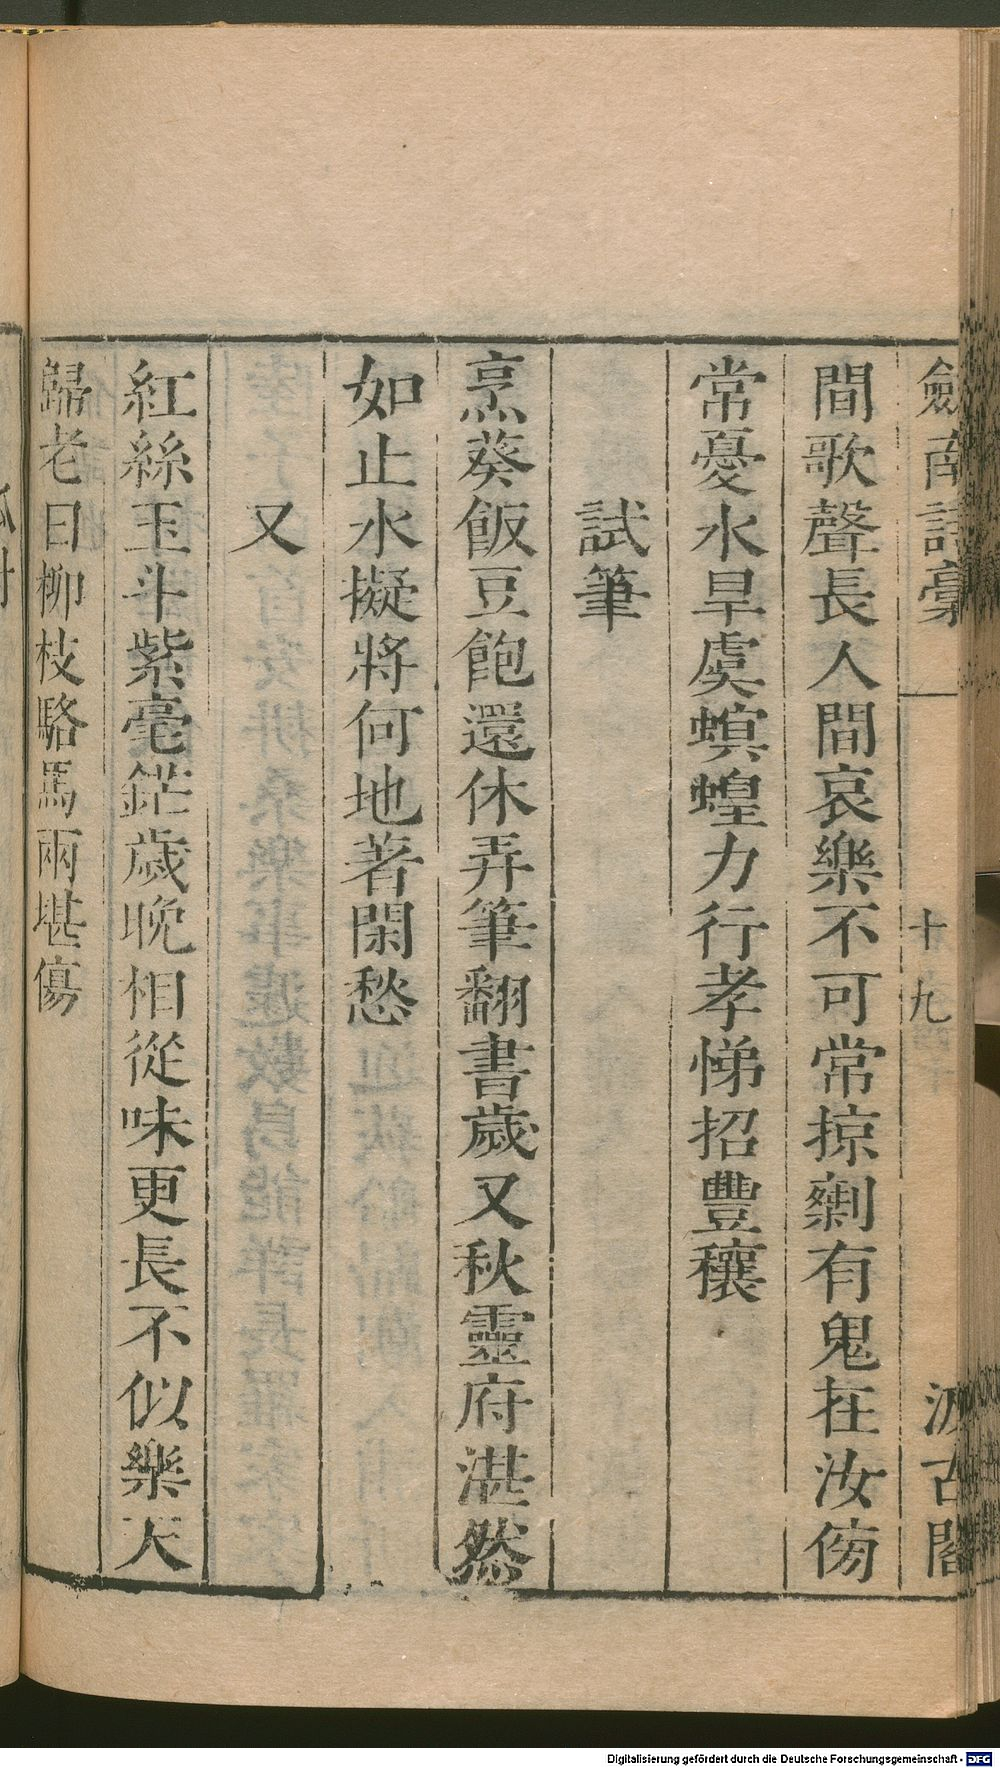 劍南詩稾 十九 汲古閣
間歌聲長人間哀樂不可常掠剩有鬼在汝傍
常憂水旱虞螟蝗力行孝悌招豐穰
試筆
烹葵飯豆飽還休弄筆翻書歲又秋靈府湛然
如止水擬將何地著閑愁
又
紅絲玉斗紫毫鋩歲晚相從味更長不似樂天
歸老日柳枝駱馬兩堪傷
Digitalisierung gefördert durch die Deutsche Forschungsgemeinschaft - DFG